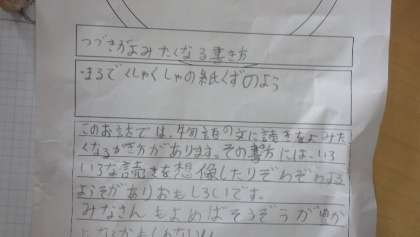 つづきがよみたくなる書き方
まるでくしゃくしゃの紙くずのよう
このお話では、毎回話の文に読きをよみた
くなるかき方があります。その書き方には、いろ
いろな読きを想像したりぞわぞわする
ようそがありおもしろいです。
みなさんもよめばそうぞうが